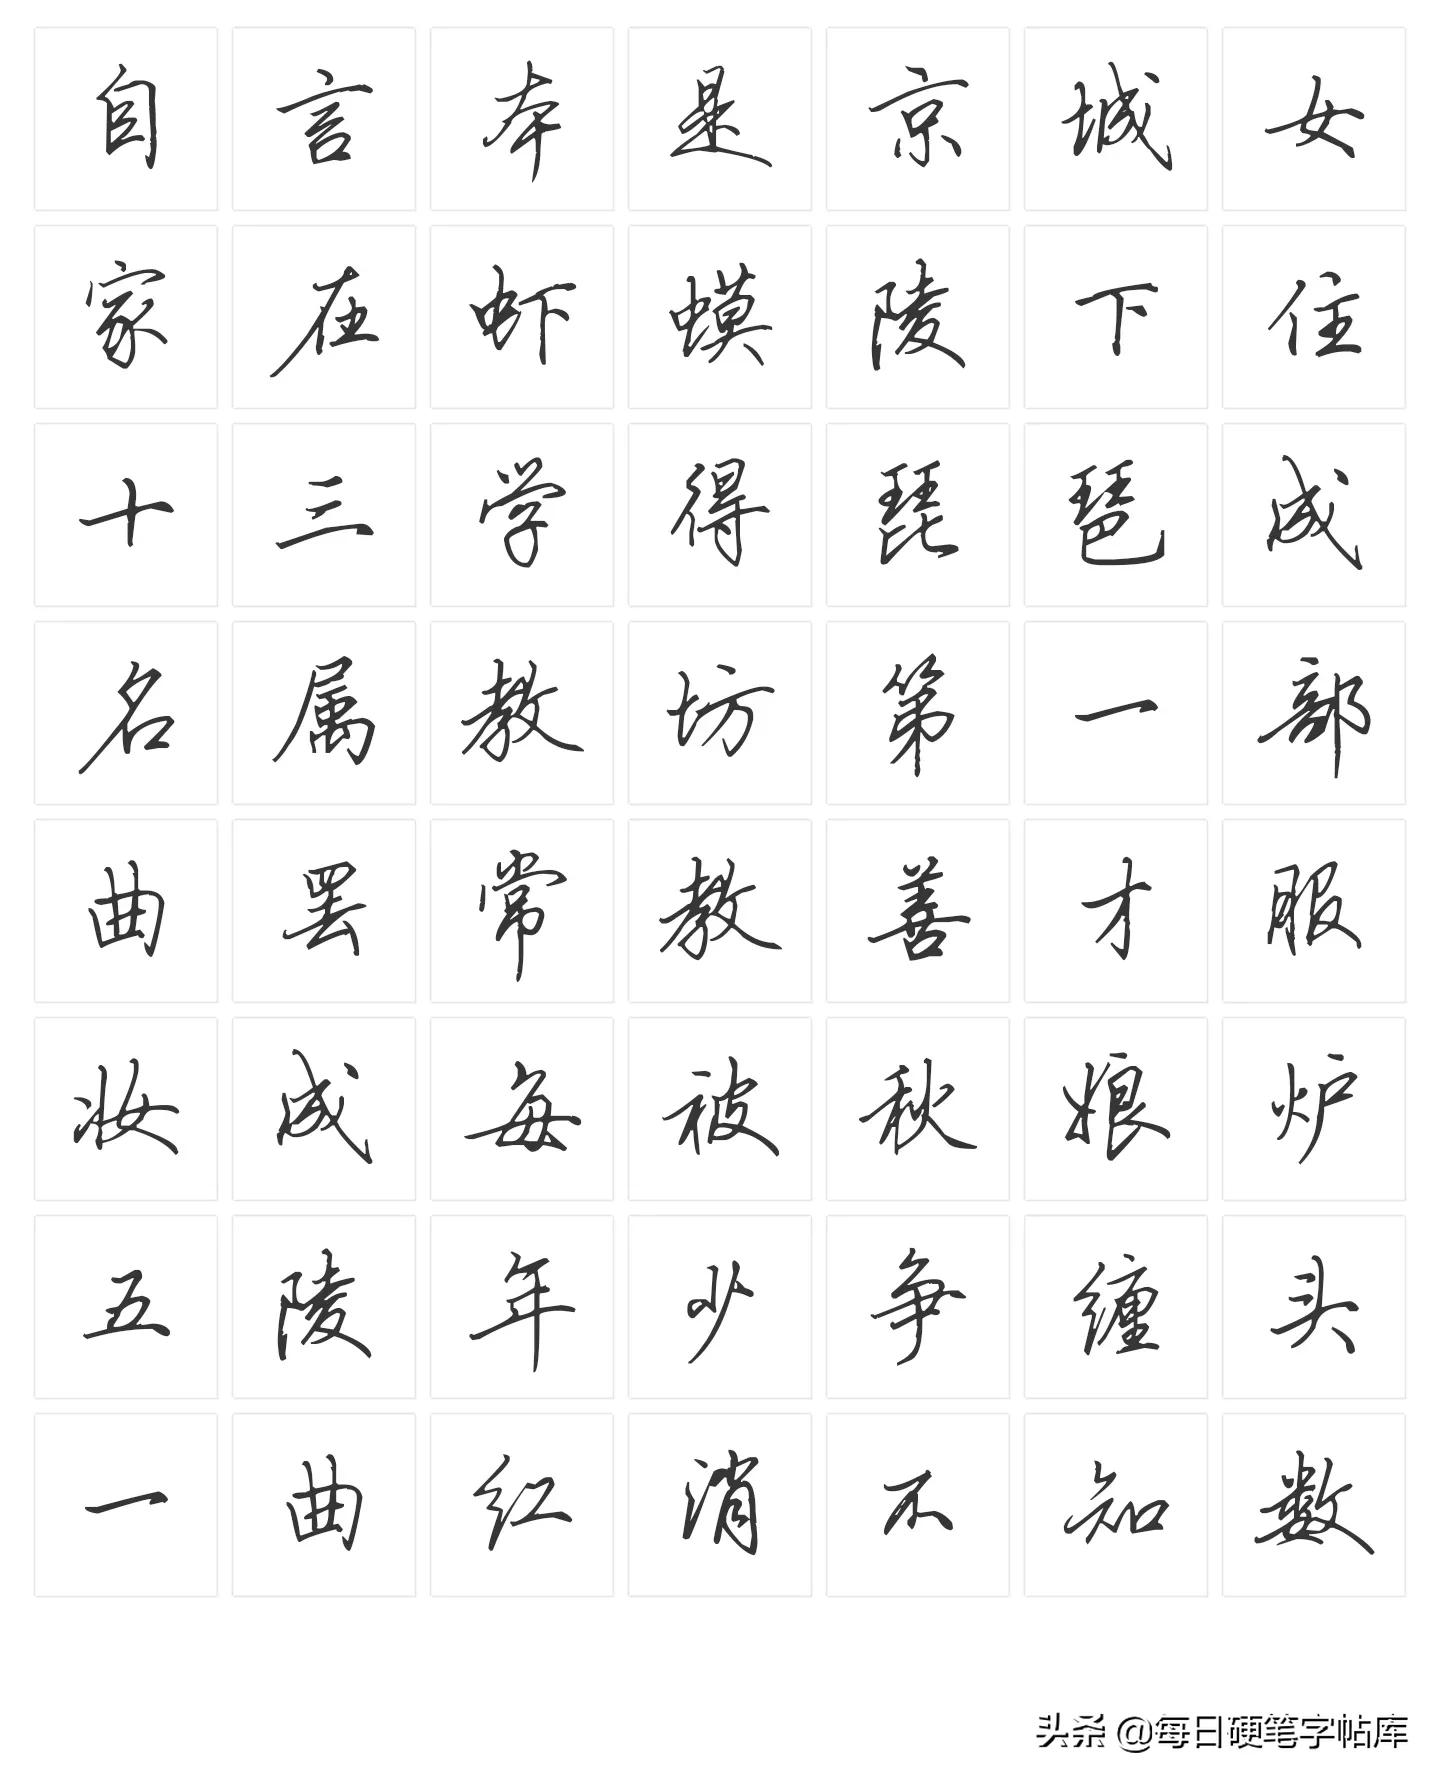 自言本是京城女
家在虾蟆陵下住
十三学得琵琶成
名属教坊第一部
曲罢常教善才服
妆成每被秋娘炉
五陵年少争缠头
一曲红消不知数
头条 @每日硬笔字帖库